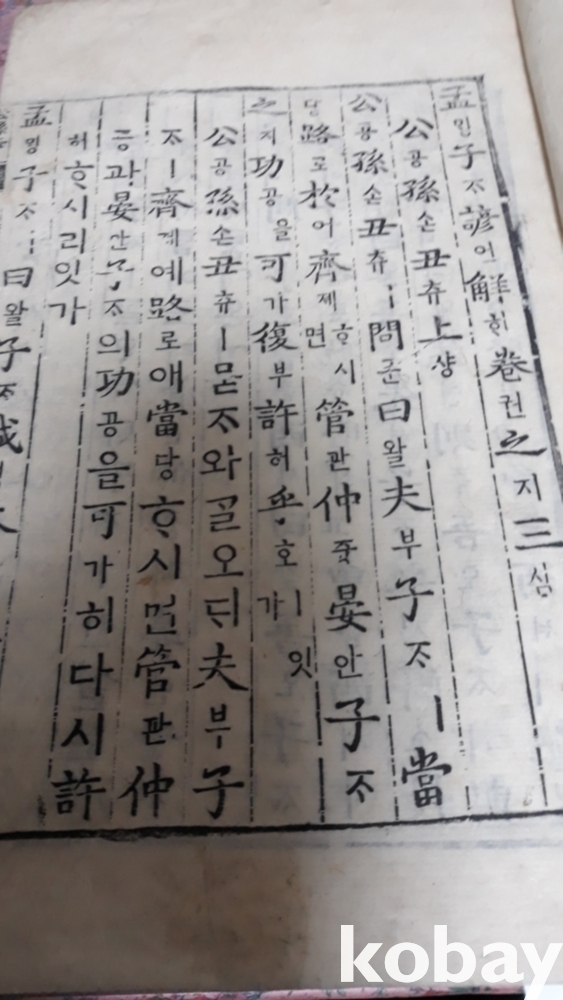 孟밍子ᄌᆞ諺언解ᄒᆡ卷권之지三삼
公공孫손丑츄上샹
公공孫손丑츄ㅣ問문曰왈夫부子ᄌᆞㅣ當
당路로於어齊졔ᄒᆞ시면管관仲듕晏안子ᄌᆞ
之지功공을可가復부許허乎호ㅣ잇가
公공孫손丑츄ㅣ묻ᄌᆞ와ᄀᆞᆯ오ᄃᆡ夫부子
ᄌᆞㅣ齊졔예路로애當당ᄒᆞ시면管관仲
듕과晏안子ᄌᆞ의功공을可가히다시許
허ᄒᆞ시리잇가
孟밍子ᄌᆞㅣ曰왈子ᄌᆞ誠
kobay